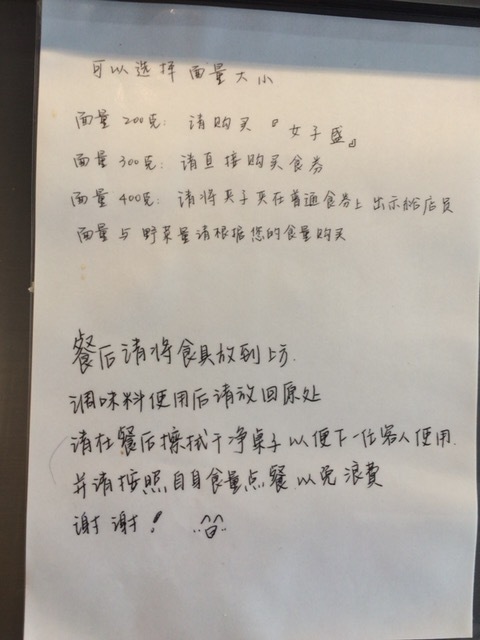 可以选择 面量大小
面量 200克: 请购买『女子盛』
面量 300克: 请直接购买食券
面量 400克: 请将夹子夹在普通食券上 出示给店员
面量与 野菜量请根据您的食量购买
餐后请将食具放到上方.
调味料使用后请放回原处
请在餐后擦拭干净桌子以便下一位客人使用.
并请按照自身食量点餐以免浪費
谢谢!